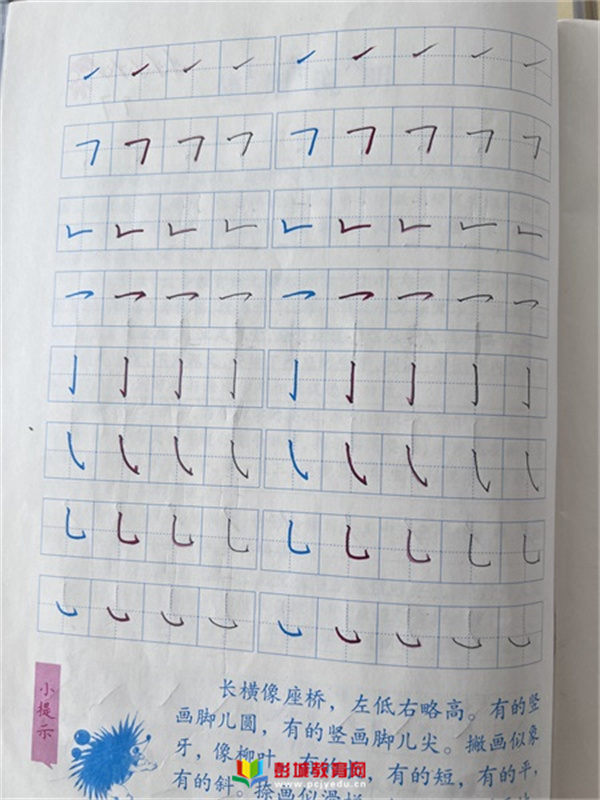 小提示
长横像座桥，左低右略高。有的竖
画脚儿圆，有的竖画脚儿尖。撇画似象
牙，像柳叶，有的，有的短，有的平，
有的斜。捺画似滑梯
彭城教育网
www.pcjyedu.cn